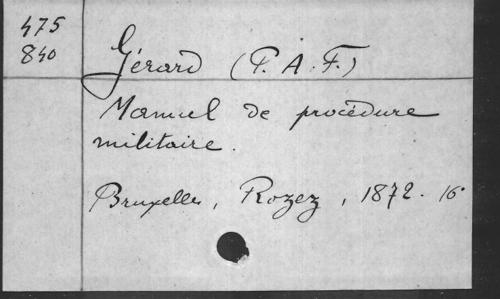 475
840
Gérard (P. A. F.)
Manuel de procédure
militaire.
Bruxelles, Rozez, 1872. 16°